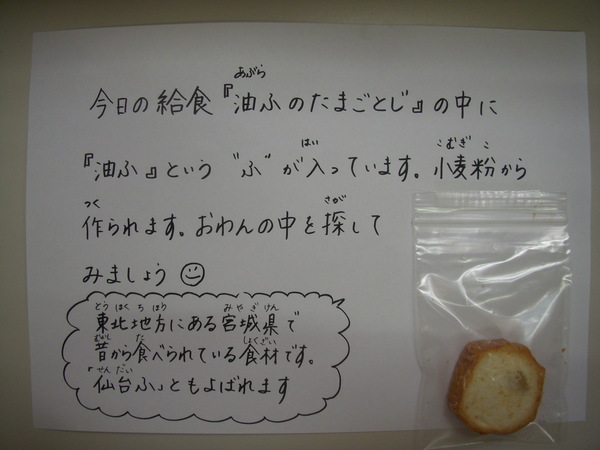 あぶら
今日の給食『油ふのたまごとじ』の中に
はい こむぎ こ
『油ふ』という"ふ"が入っています。小麦粉から
つく さが
作られます。おわんの中を探して
みましょう
とう ほく ち ほう みや ぎ けん
東北地方にある宮城県で
むかし た しょくざい
昔から食べられている食材です。
せん だい
「仙台ふ」ともよばれます